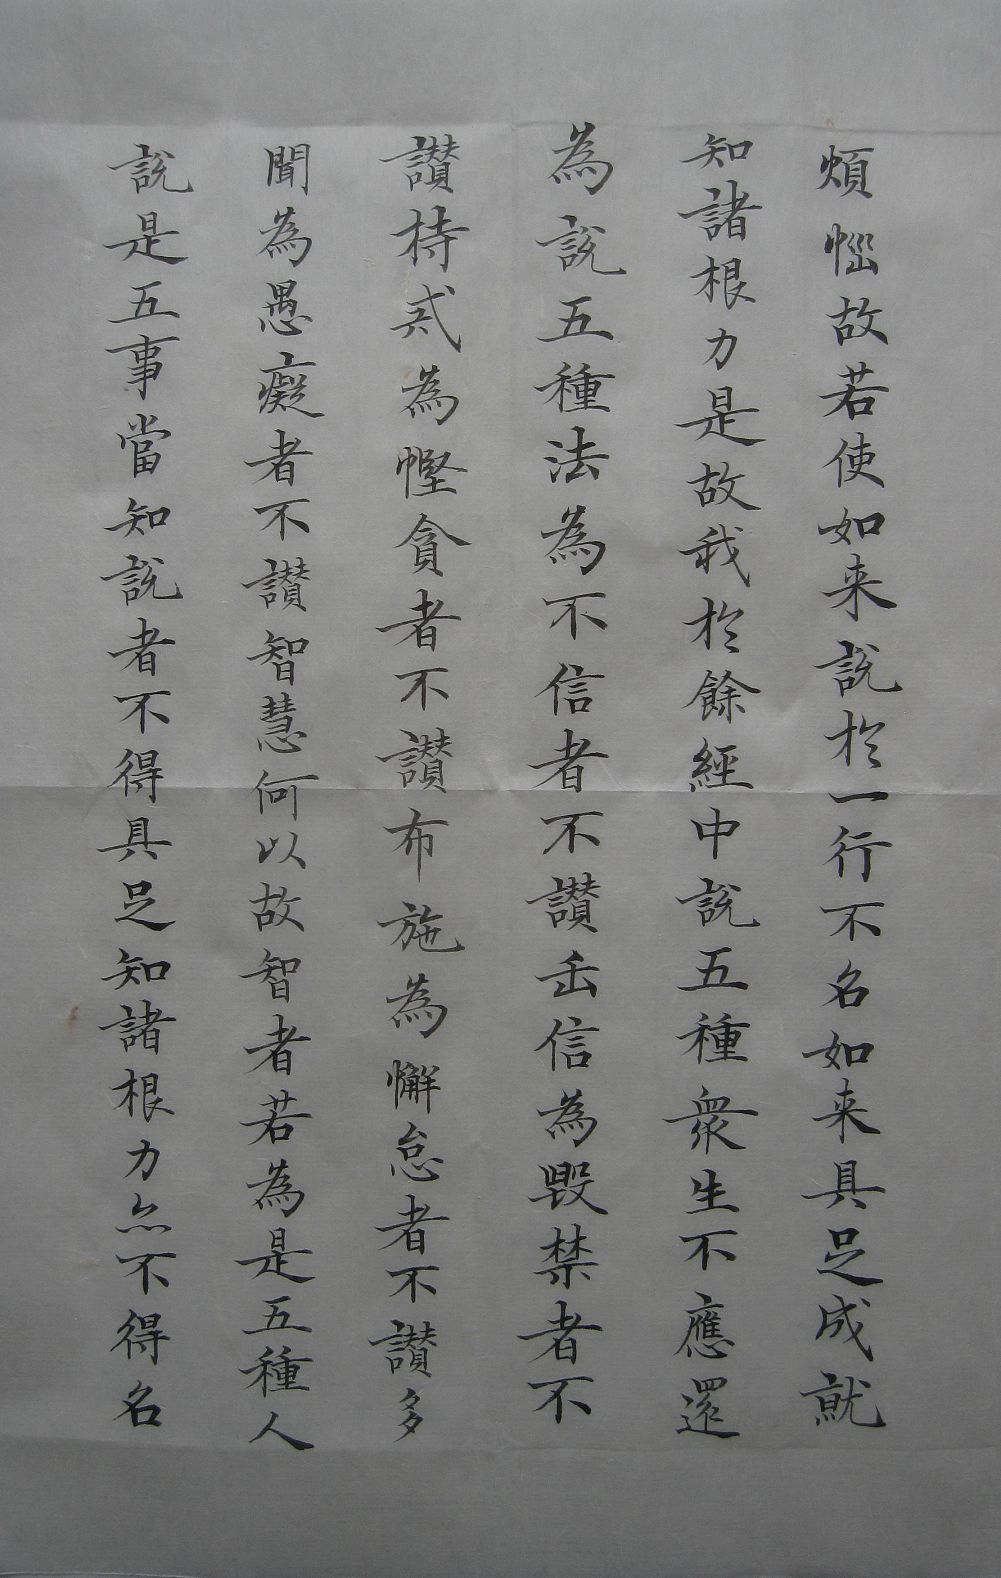 煩惱故若使如来說於一行不名如来具足成就
知諸根力是故我於餘經中說五種衆生不應還
為說五種法為不信者不讃㱏信為毀禁者不
讃持戒為慳貪者不讃布施為懈怠者不讃多
聞為愚癡者不讃智慧何以故智者若為是五種人
說是五事當知說者不得具足知諸根力亦不得名